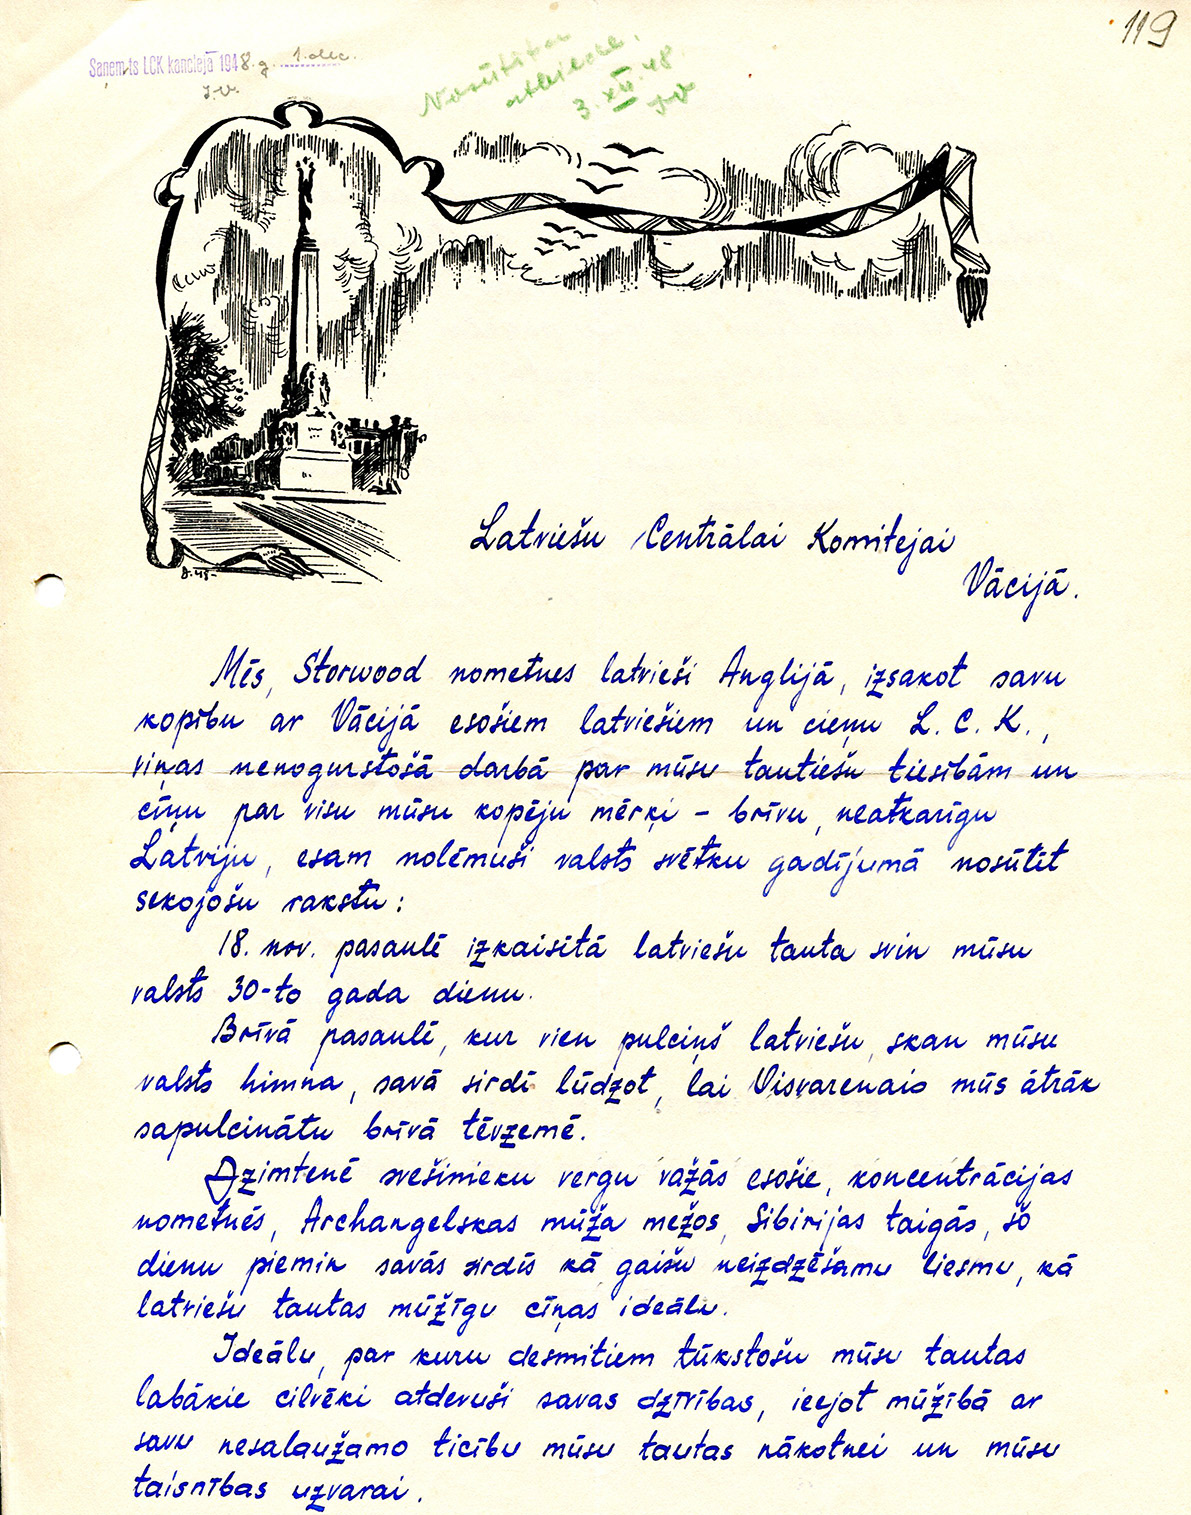 119
Saņemts LCK kanclejā 1948. g. 1. dec.
J.V.
Nosūtīta
atbilde.
3. XII 48
JV
D.48-
Latviešu Centrālai Komitejai
Vācijā.
Mēs, Storwood nometnes latvieši Anglijā, izsakot savu
kopību ar Vācijā esošiem latviešiem un cieņu L. C. K.,
viņas nenogurstošā darbā par mūsu tautiešu tiesībām un
cīņu par visu mūsu kopēju mērķi - brīvu, neatkarīgu
Latviju, esam nolēmuši valsts svētku gadījumā nosūtīt
sekojošu rakstu:
18. nov. pasaulē izkaisītā latviešu tauta svin mūsu
valsts 30-to gada dienu.
Brīvā pasaulē, kur vien pulciņš latviešu, skan mūsu
valsts himna, savā sirdī lūdzot, lai Visvarenais mūs ātrāk
sapulcinātu brīvā tēvzemē.
Dzimtenē svešinieku vergu važās esošie, koncentrācijas
nometnēs, Archangelskas mūža mežos, Sibirijas taigās, šo
dienu piemin savās sirdīs kā gaišu neizdzēšamu liesmu, kā
latviešu tautas mūžīgu cīņas ideālu.
Ideālu, par kuru desmitiem tūkstošu mūsu tautas
labākie cilvēki atdevuši savas dzīvības, ieejot mūžībā ar
savu nesalaužamo ticību mūsu tautas nākotnei un mūsu
taisnības uzvarai.